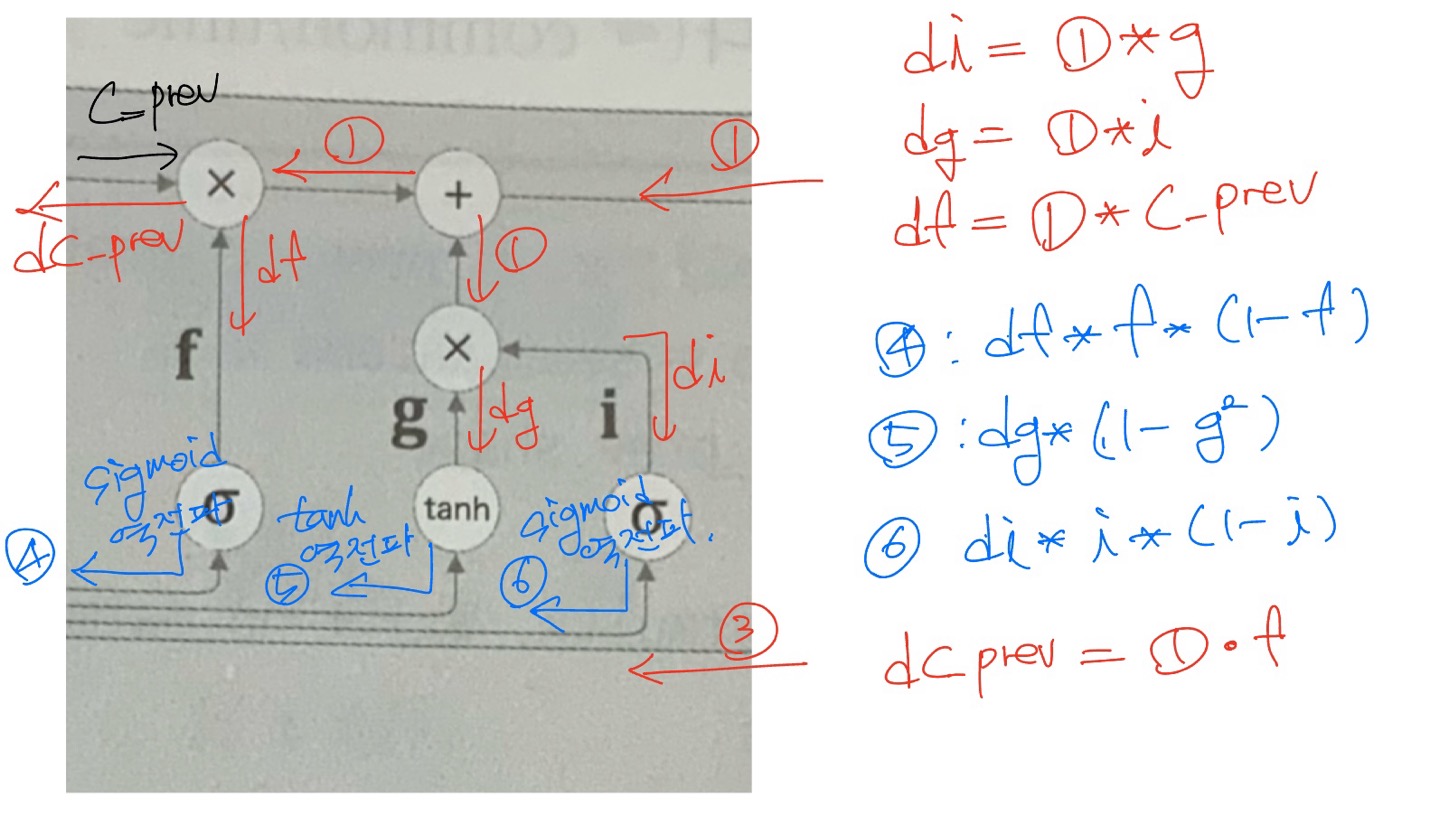 C-prev
①
①
dc-prev
df
①
f
di
g
dg
i
sigmoid
역전파
④
tanh
역전파
⑤
tanh
sigmoid
역전파.
⑥
σ
σ
③
×
+
×
di = ① * g
dg = ① * i
df = ① * C-prev
④ : df * f * (1 - f)
⑤ : dg * (1 - g²)
⑥ di * i * (1 - i)
dc prev = ① • f